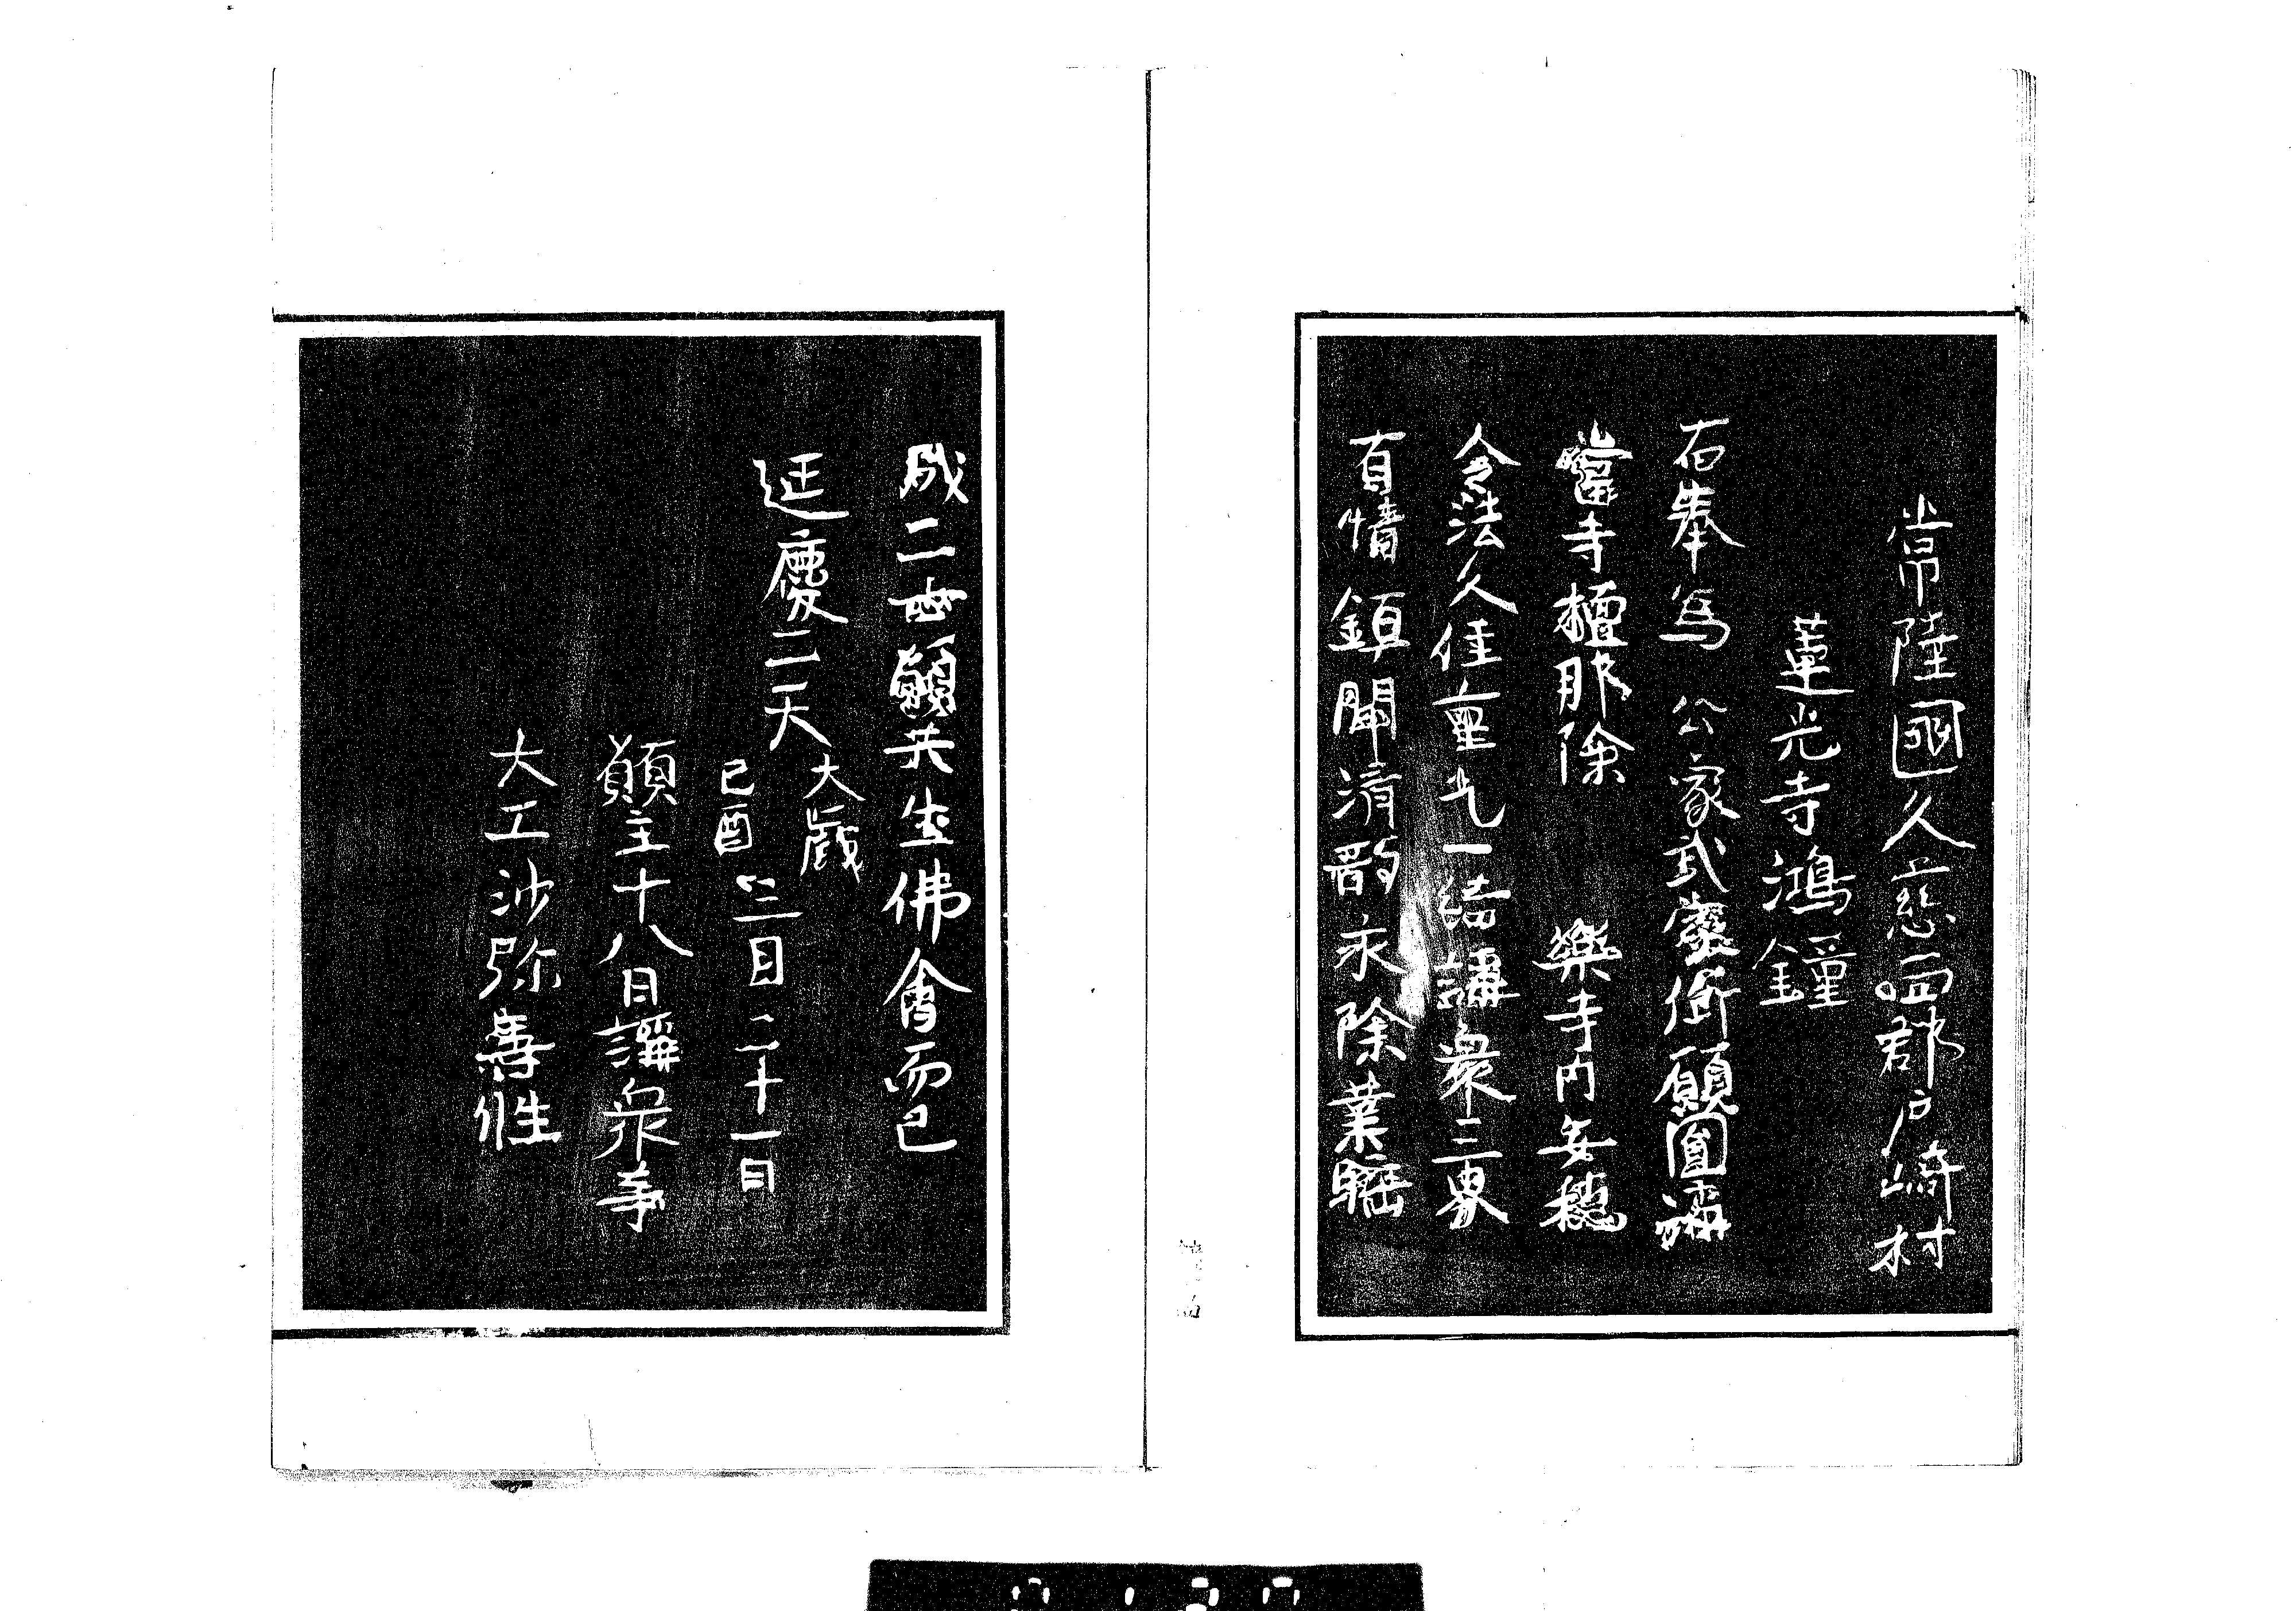 常陸國久慈西郡戸崎村
蓮光寺鴻鐘
右奉為 公家武家御願圓滿
當寺檀那除 樂寺内安穏
令法久住重乞一結講衆三界
有情鎮聞清韵永除業
成二世願共生佛會而已
延慶二天大歳己酉二月二十一日
願主十八日講衆等
大工沙弥善性